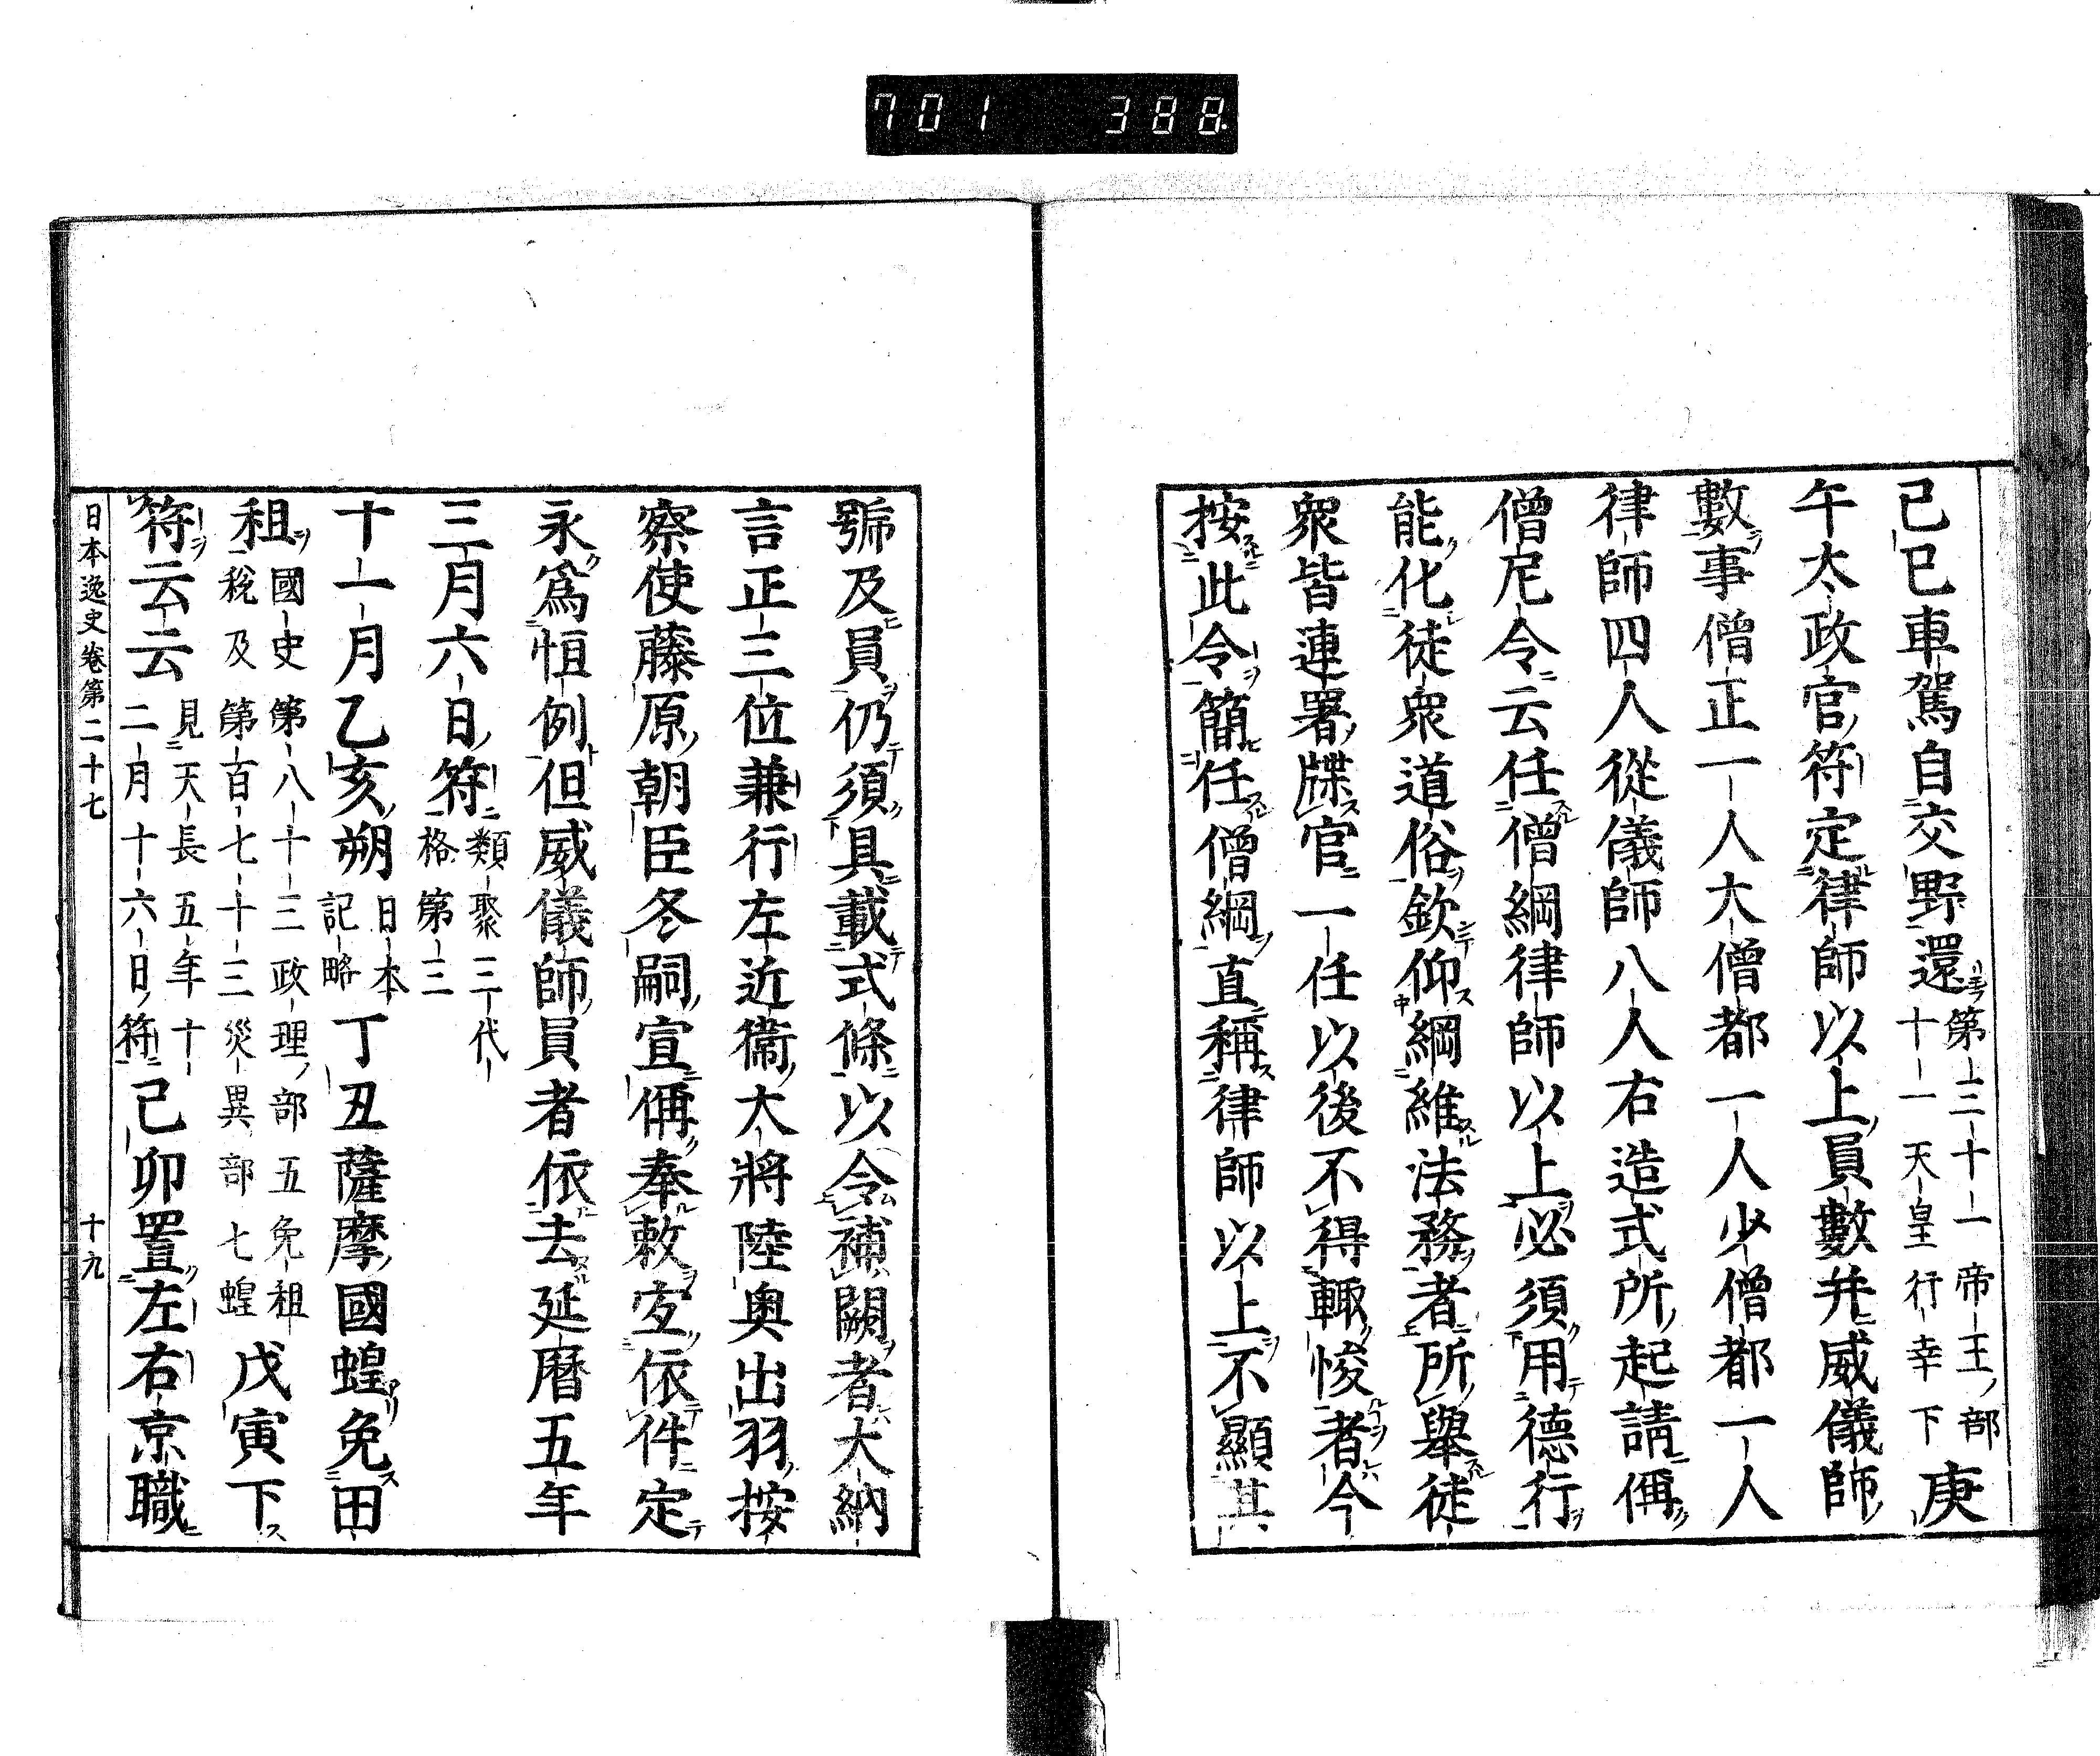 701 388
己巳車駕自交野還第三十一帝王部十一天皇行幸下庚
午太政官符定律師以上員數并威儀師
數事僧正一人大僧都一人少僧都一人
律師四人從儀師八人右造式所起請偁
僧尼令云任僧綱律師以上必須用德行
能化徒衆道俗欽仰綱維法務者所舉徒
衆皆連署牒官一任以後不得輙悛者今
按此令簡任僧綱直稱律師以上不顯其
號及員仍須具載式條以令補闕者大納
言正三位兼行左近衞大將陸奥出羽按
察使藤原朝臣冬嗣宣偁奉敕宜依件定
永爲恒例但威儀師員者依去延曆五年
三月六日符類聚三代格第三
十一月乙亥朔日本記略丁丑薩摩國蝗免田
租國史第八十三政理部五免租税及第百七十三災異部七蝗戊寅下
符云云見天長五年十二月十六日符己卯置左右京職
日本逸史卷第二十七 十九